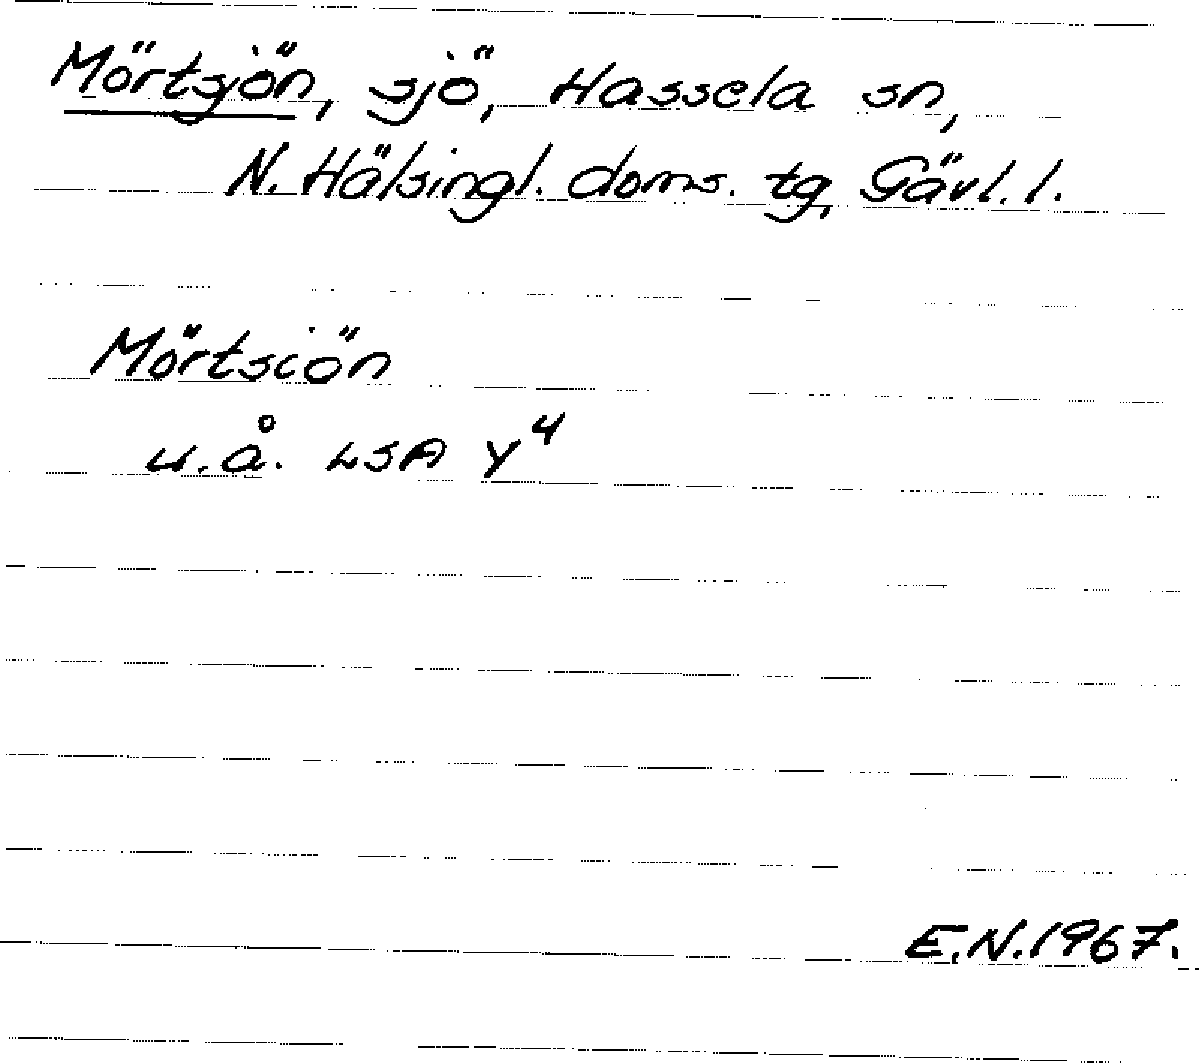 Mörtsjön, sjö, Hassela sn,
N. Hälsingl. doms. tg, Gävl. l.
Mörtsiön
u.å. LSA Y⁴
E.N. 1967.